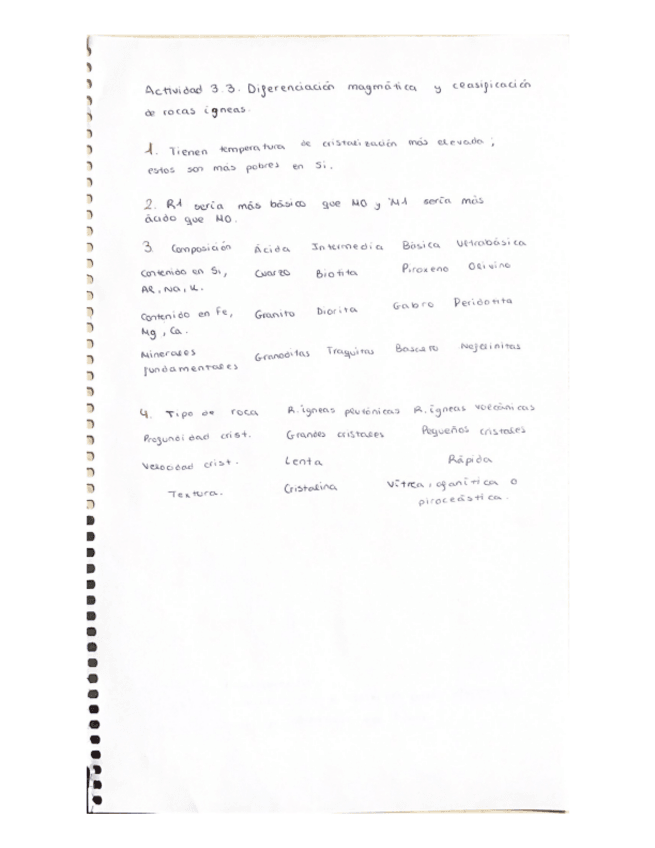 Actividad 3.3. Diferenciación magmática y clasificación
de rocas ígneas.
1. Tienen temperatura de cristalización más elevada;
estos son más pobres en Si.
2. R1 sería más básico que M0 y M1 sería más
ácido que M0.
3. Composición Ácida Intermedia Básica Ultrabásica
Contenido en Si, Cuarzo Biotita Piroxeno Olivino
Al, Na, K.
Contenido en Fe, Granito Diorita Gabro Peridotita
Mg, Ca.
Minerales Traquitas Basalto Nefelinitas
fundamentales
4. Tipo de roca R. ígneas plutónicas R. ígneas volcánicas
Profundidad crist. Grandes cristales Pequeños cristales
Velocidad crist. Lenta Rápida
Textura. Cristalina Vítrea, afanítica o
piroclástica.